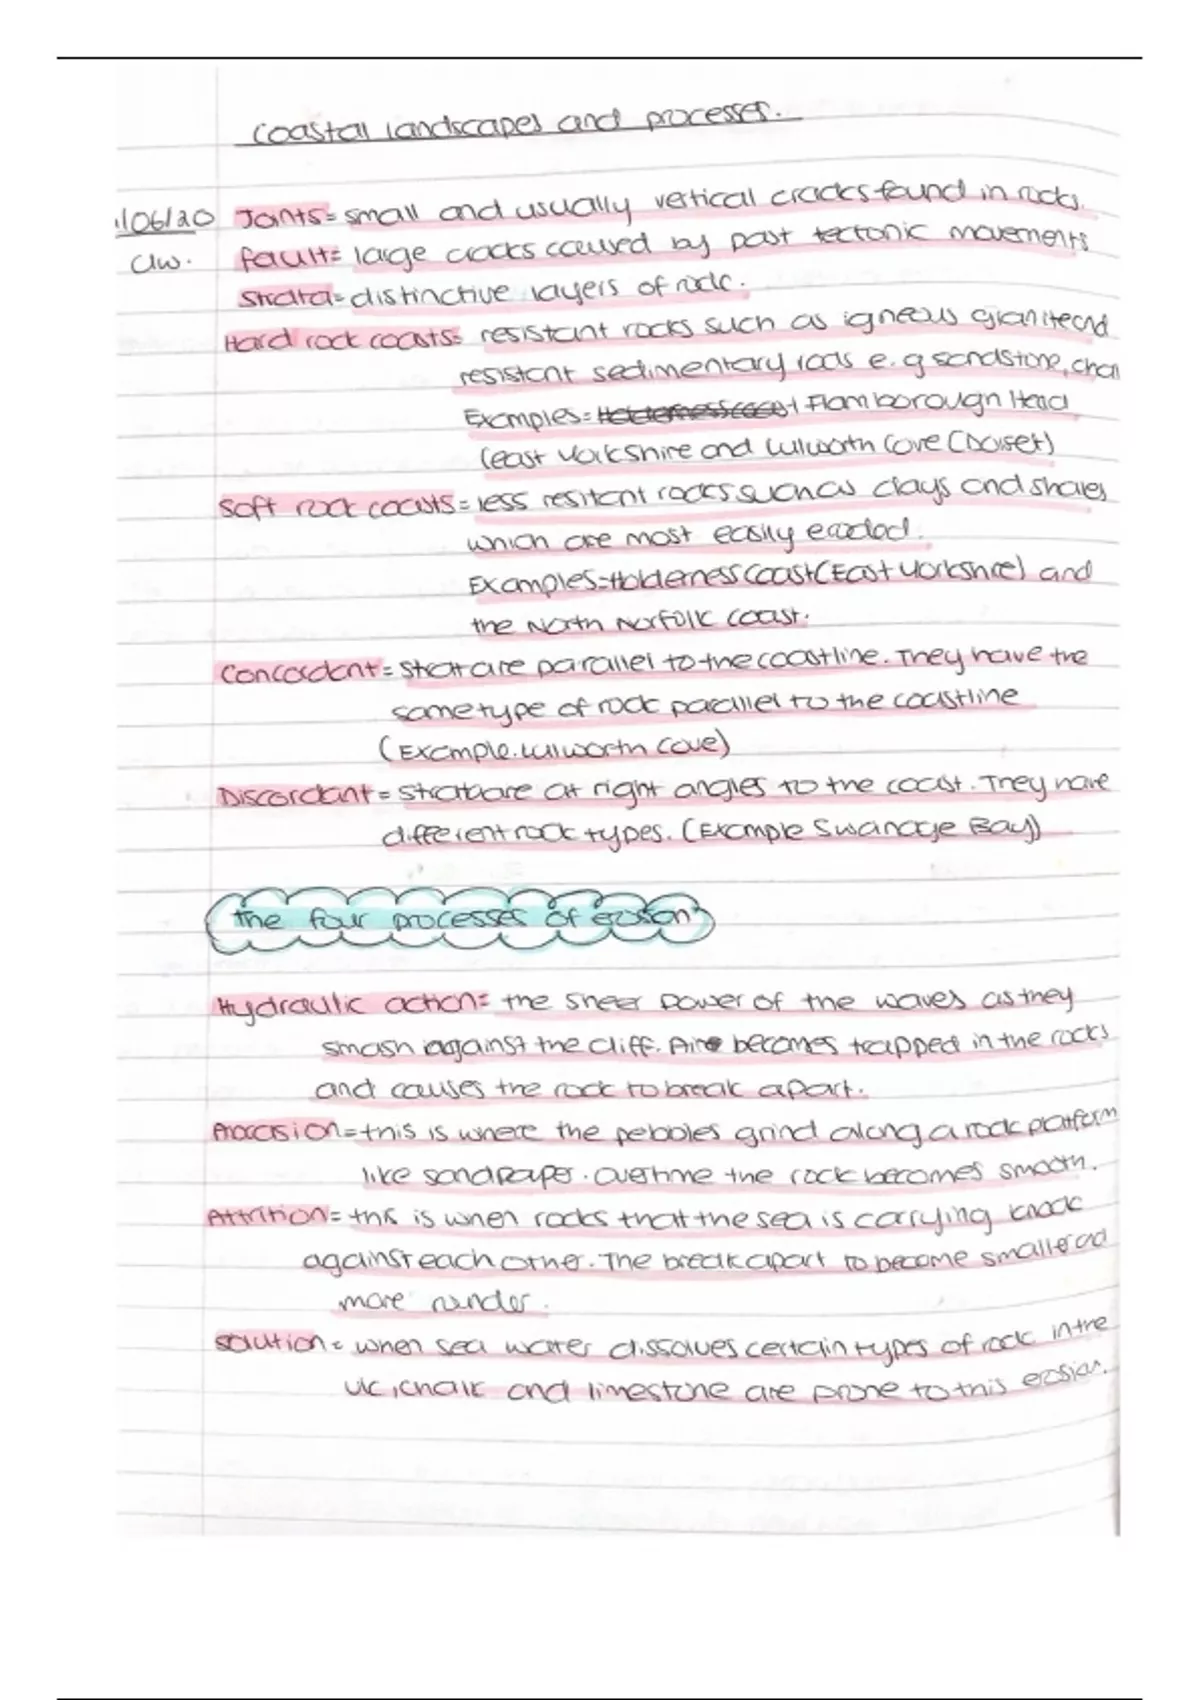 Coastal landscapes and processes.
1/06/20 Joints = small and usually vertical cracks found in rocks.
C/w. fault = large cracks caused by past tectonic movements
Strata = distinctive layers of rock.
Hard rock coasts = resistant rocks such as igneous granite and
resistant sedimentary rocks e.g sandstone, chal
Examples = Flamborough Head
(east Yorkshire and Lulworth Cove (Dorset)
Soft rock coasts = less resitant rocks such as clays and shales
which are most easily eroded.
Examples = Holderness Coast (East Yorkshire) and
the North Norfolk coast.
Concordant = Strat are parallel to the coastline. They have the
same type of rock parallel to the coastline
(Example. Lulworth Cove)
Discordant = strata are at right angles to the coast. They have
different rock types. (Example Swanage Bay))
the four processes of erosion
Hydraulic action = the sheer power of the waves as they
smash against the cliff. Air becomes trapped in the rocks
and causes the rock to break apart.
Abrasion = this is where the pebbles grind along a rock platform
like sandpaper. Overtime the rock becomes smooth.
Attrition = this is when rocks that the sea is carrying knock
against each other. The break apart to become smaller and
more rounder.
Solution = when sea water dissolves certain types of rock in the
UK, chalk and limestone are prone to this erosion.